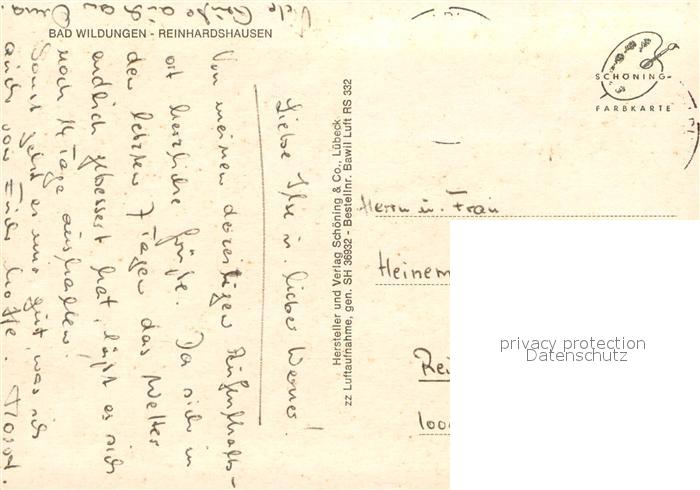 BAD WILDUNGEN - REINHARDSHAUSEN
SCHÖNING-
FARBKARTE
Liebe Ilse u. lieber Werner!
Von meinem derzeitigen Aufenthalts-
ort herzliche Grüße. Da sich in
den letzten 7 Tagen das Wetter
endlich gebessert hat, läßt es sich
noch 14 Tage aushalten.
Sonst geht es uns gut, was ich
auch von Euch hoffe.
Viele Grüße auch an
Hersteller und Verlag Schöning & Co., Lübeck
zz Luftaufnahme, gen. SH 36932 - Bestellnr. Bawil Luft RS 332
Herrn u. Frau
Heinem
Rei
1000
privacy protection
Datenschutz